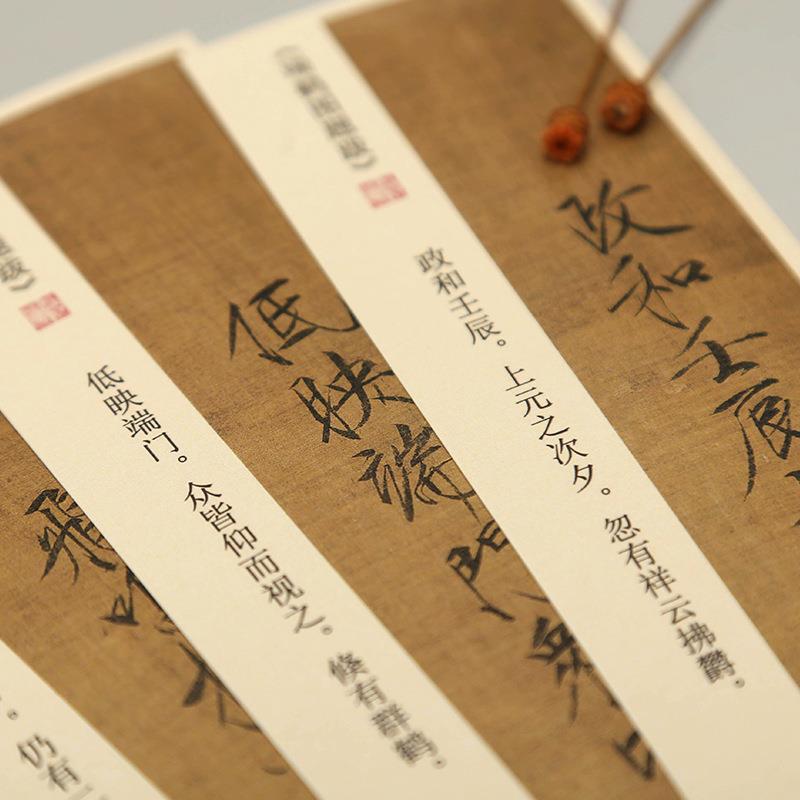 政和壬辰
《瑞鹤图题跋》
政和壬辰。上元之次夕。忽有祥云拂欝。
低映端門眾
题跋》
低映端门。众皆仰而视之。倏有群鹤。
飛鳴於
。仍有